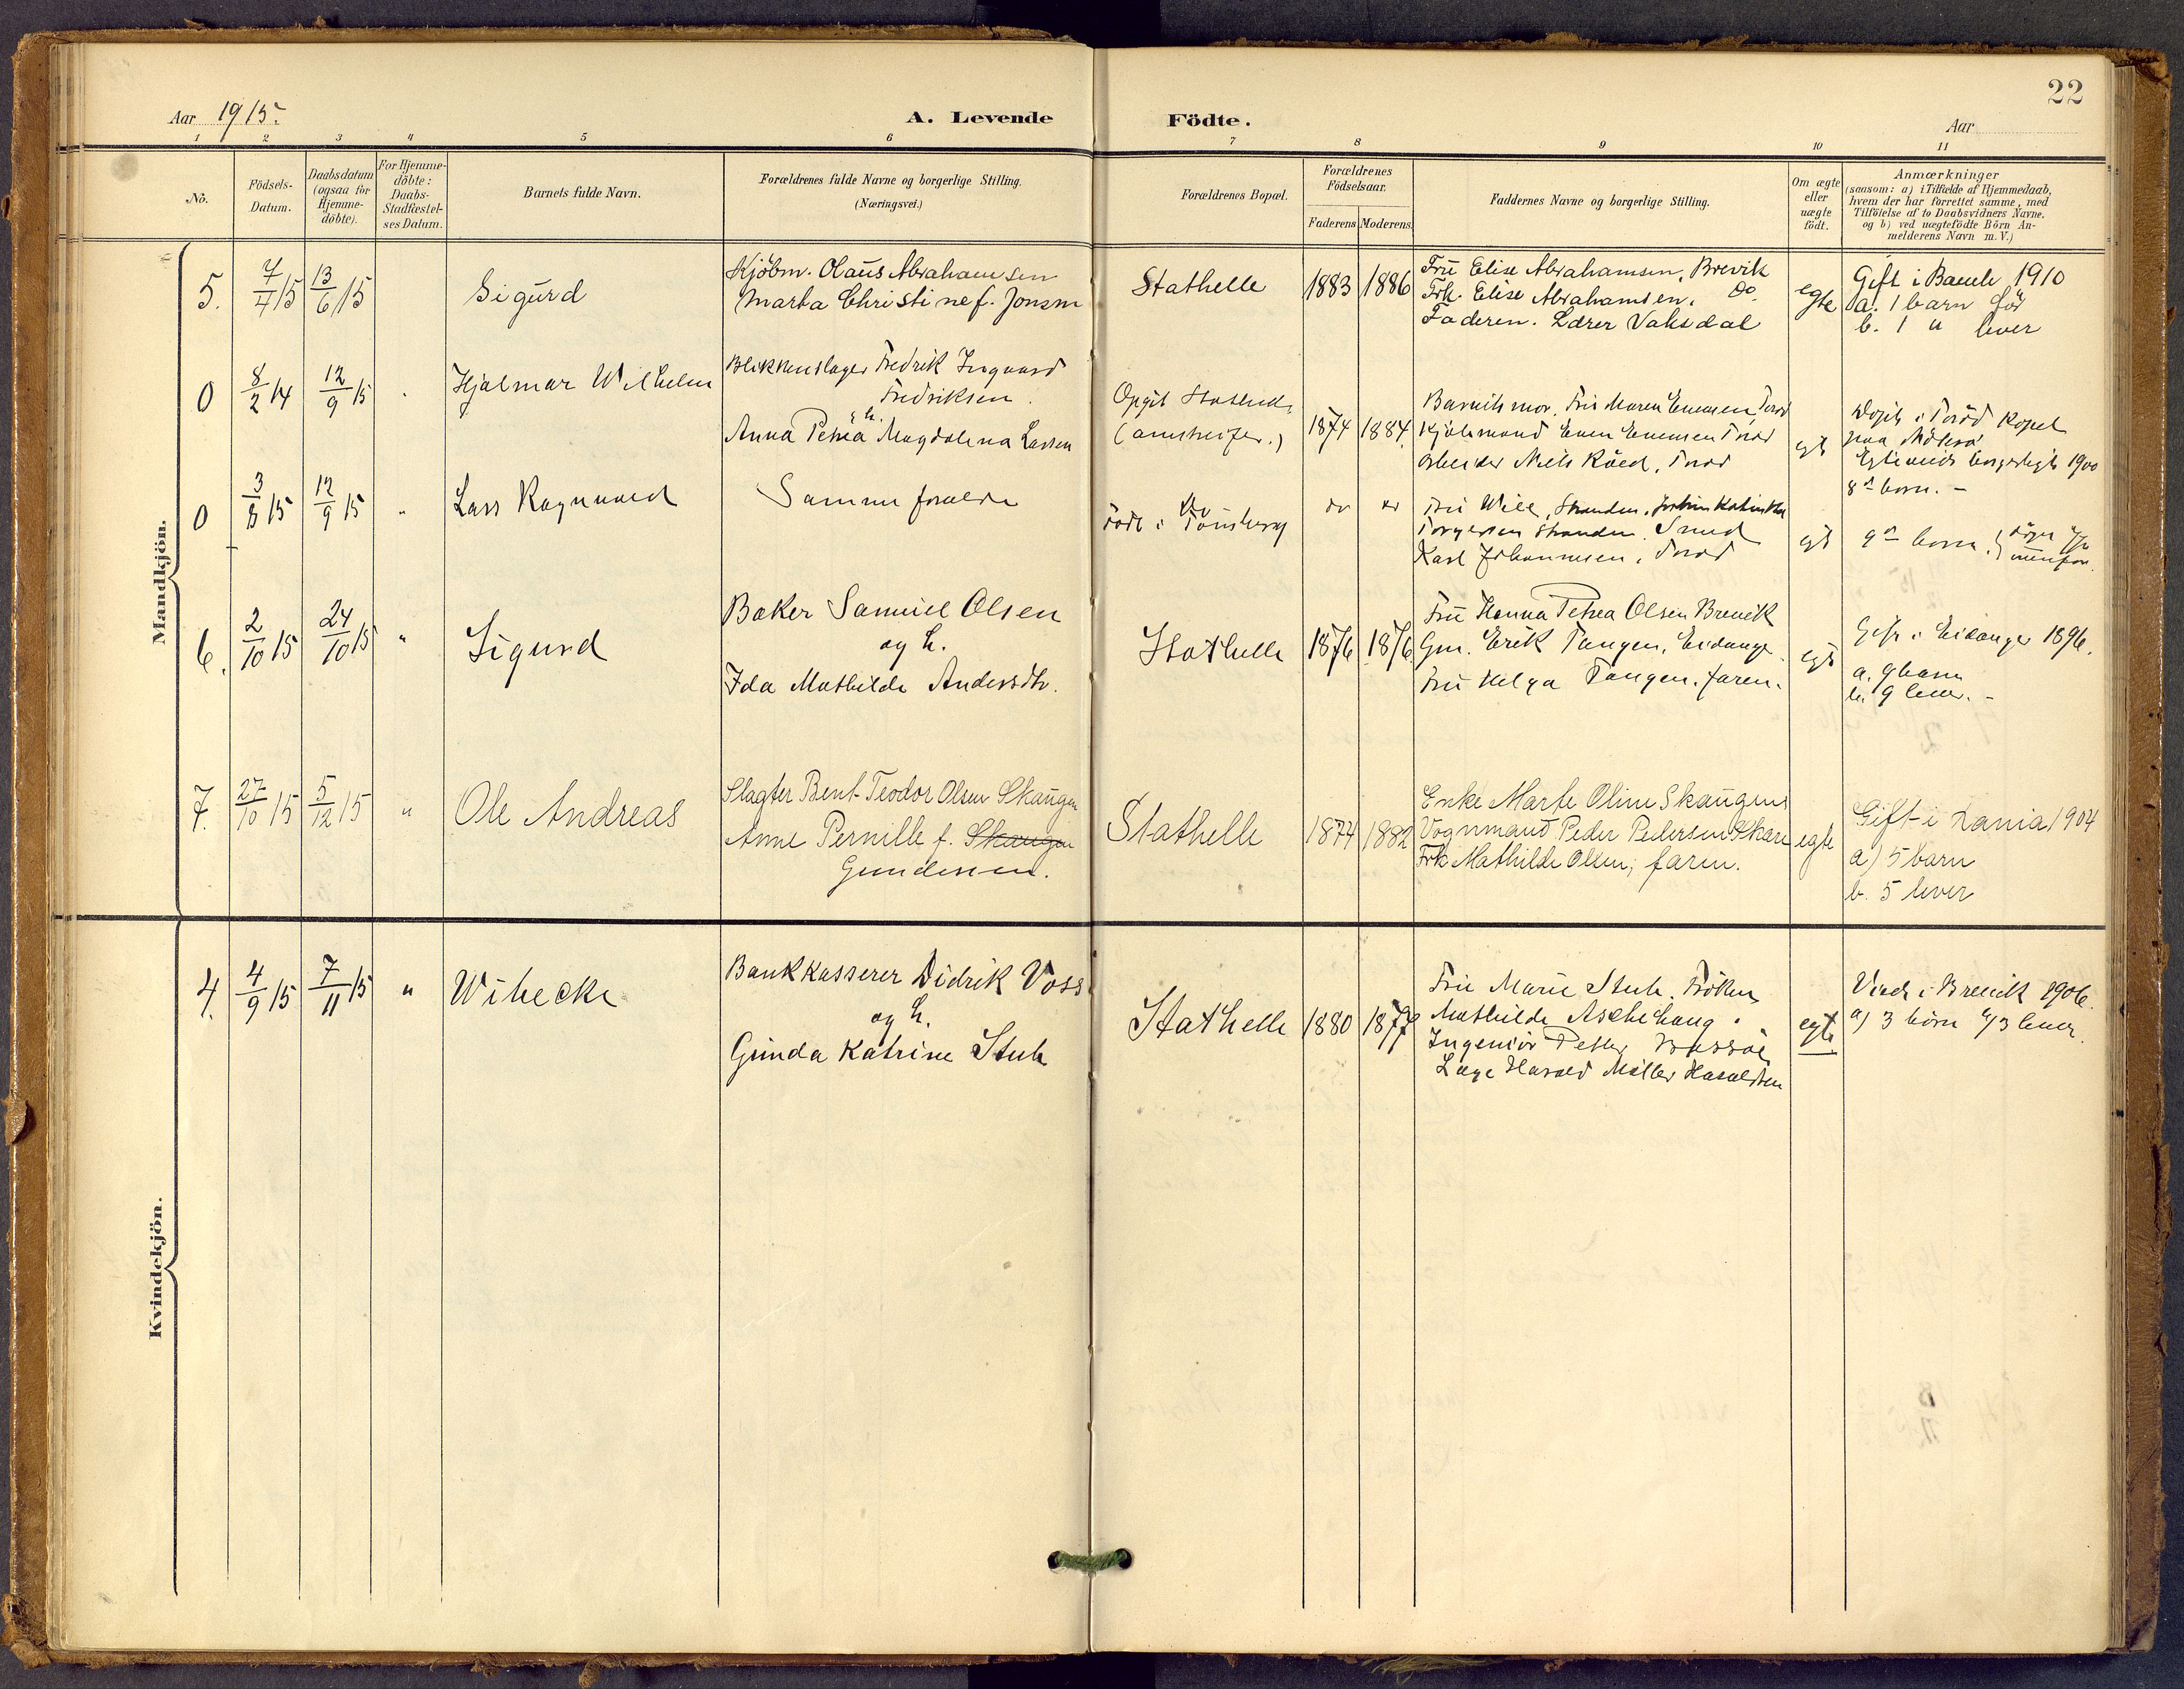 22
Aar 1915.
A. Levende Födte.
Aar
1 2 3 4 5 6 7 8 9 10 11
No.
Födsels-
Datum.
Daabsdatum
(ogsaa for
Hjemme-
döbte).
For Hjemme-
döbte:
Daabs-
Stadfæstel-
ses Datum.
Barnets fulde Navn.
Forældrenes fulde Navne og borgerlige Stilling.
(Næringsvei.)
Forældrenes Bopæl.
Forældrenes
Födselsaar.
Faderens Moderens
Faddernes Navne og borgerlige Stilling.
Om ægte
eller
uægte
födt.
Anmærkninger
(saasom: a) i Tilfælde af Hjemmedaab,
hvem der har forrettet samme, med
Tilföielse af to Daabsvidners Navne.
og b) ved uægtefödte Börn An-
melderens Navn m. V.)
Mandkjön.
5.
7/4 15
13/6 15
Sigurd
Kjöbm. Olaus Abrahamsen
Marta Christine f. Jonsen
Stathelle
1883
1886
Fru Elise Abrahamsen, Brevik
Frk. Elise Abrahamsen, Do.
Faderen. Lærer Vaksdal
egte
Gift i Bamle 1910
a. 1 barn för
b. 1 " lever
0
8/2 14
12/9 15
Hjalmar Wilhelm
Blikkenslager Fredrik Ingvard
Fredriksen.
& h.
Anna Petrea Magdalena Larsen
Opgit Stathelle
1874
1884
Barnets mor. Fru Maren Evensen
Kjöbmand Even Evensen
Arbeider Niels
egt
i Töröd Kapel
paa Nöterö
borgerligt 1900
8de barn. -
0
3/8 15
12/9 15
"
Lars Ragnvald
Samme forældre
Do
Född i Tönsberg
do
do
Strandem.
Karl Johannesen,
egt
9de barn.
6.
2/10 15
24/10 15
"
Sigurd
Baker Samuel Olsen
og h.
Ida Mathilde Andersdtr.
Stathelle
1876
1876
Fru Hanna Petrea Olsen Brevik
Gm. Erik Tangen, Eidanger.
Fru Helga Tangen. faren.
egt
Gift i Eidanger 1896.
a. 9 barn
b. 9 lever. -
7.
27/10 15
5/12 15
"
Ole Andreas
Slagter Bent Teodor Olsen Skaugen
Anne Pernille f. Skaugen
Gundersen.
Stathelle
1874
1882
Enke Marte Oline Skaugens
Vognmand Peder Pedersen Skare
Frk Mathilde Olsen; faren.
egte
Gift i Dania 1904
a) 5 barn
b. 5 lever
Kvindekjön.
4.
4/9 15
7/11 15
"
Wibecke
Bankkasserer Didrik Voss
og h.
Gunda Katrine Stub
Stathelle
1880
1877
Fru Marie Stub. Fröken
Mathilde Aschehoug.
Ingeniör Petter
Læge Harald Möller Haraldsen
egte
Viede i Brevik 1906.
a) 3 börn b/ 3 lever.